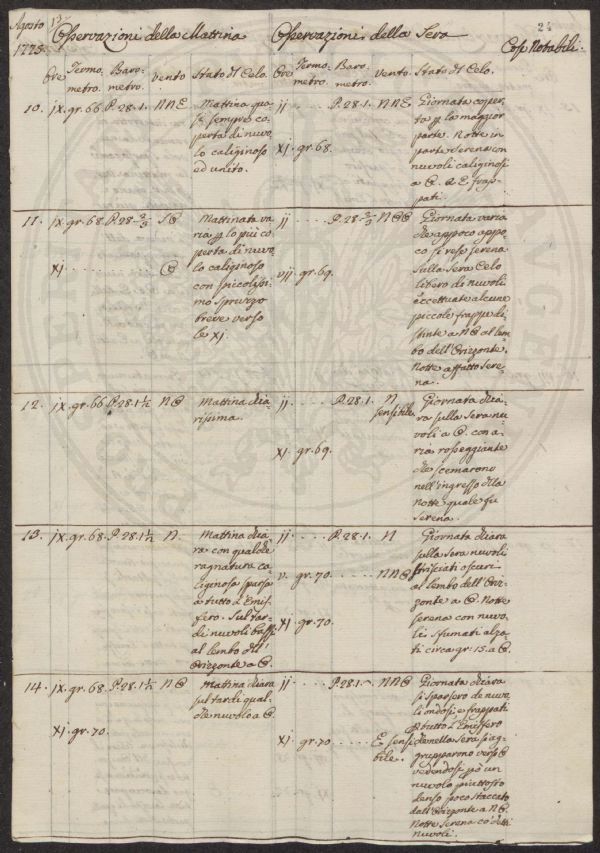 Agosto 1775.
24
Osservazioni della Mattina
Osservazioni della Sera
Cose Notabili.
Ore
Termo-metro.
Baro-metro.
vento
Stato del Celo.
Ore
Termo-metro.
Baro-metro.
vento
Stato del Celo.
10. jx. gr. 66 P. 28. 1. NNE
Mattina qua-
si sempre co-
perta di nuvo-
lo caliginoso
ed unito.
jj . . . . P. 28. 1. NNE
XJ. gr. 68.
Giornata coper-
ta p la maggior
parte. Notte in
parte serena con
nuvoli caliginosi
a O. & E frap-
pati.
11. jx. gr. 68. P. 28. 2/3 SO
XJ . . . . O
Mattinata va-
ria p lo più co-
perta di nuvo-
lo caliginoso
con piccolissi-
mo spruzzo
breve verso
le XJ.
jj . . . . P. 28. 2/3 NOO
vjj. gr. 69.
Giornata varia
che appoco appo-
co si rese serena
sulla sera Celo
libero di nuvoli
eccettuate alcune
piccole frappe di-
stinte a NO al lem-
bo dell'Orizzonte.
Notte affatto sere-
na.
12. jx. gr. 66 P. 28. 1 1/2 NO
Mattina chia-
rissima.
jj . . . . P. 28. 1. N
sensibile.
XJ. gr. 69.
Giornata chia-
ra sulla sera nu-
voli a O. con a-
ria rosseggiante
che scemarono
nell'ingresso della
notte quale fu
serena.
13. jx. gr. 68. P. 28. 1 1/2 N.
Mattina chia-
ra con qualche
ragnatura ca-
liginosa sparsa
a tutto l'Emis-
fero. Sul tar-
di nuvoli bassi
al lembo dell'
Orizzonte a O.
jj . . . . P. 28. 1. N
v. gr. 70. . . . . NNO
XJ. gr. 70.
Giornata chiara
sulla sera nuvoli
strisciati oscuri
al lembo dell'Oriz-
zonte a O. Notte
serena con nuvo-
li sfumati alza-
ti circa gr. 15. a O.
14. jx. gr. 68. P. 28. 1 1/2 NO
XJ. gr. 70.
Mattina chiara
sul tardi qual-
che nuvolo a O.
jj . . . . P. 28. 1. NNO
XJ. gr. 70 . . . . E sensi-
bile.
Giornata chiara
si sparsero de nuvo-
li ondosi e frappati
p tutto l'Emisfero
che nella sera si ag-
grupparono verso O
vedendosi più un
nuvolo piuttosto
denso poco staccato
dall'Orizzonte a NO.
Notte serena co' detti
nuvoli.